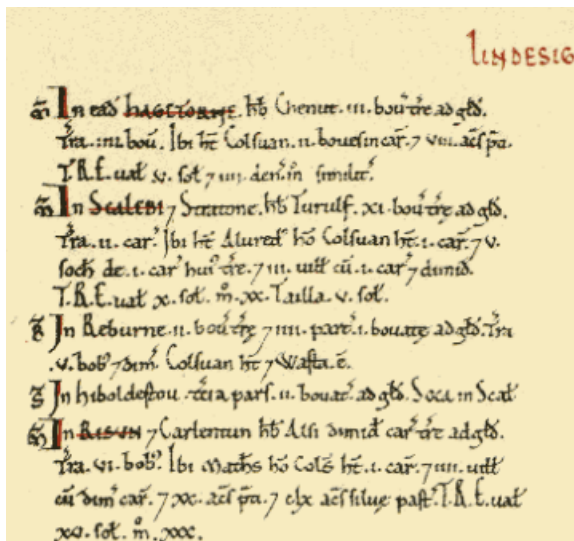 LINDESIG
m̃ In ead HAGETORNE. hb̄ Chenut. iii. bou' t̃re ad gld̄.
T̃ra. iiii. bou'. Ibi ht̄ Colsuan. ii. boues in car̃. ⁊ viii. ac̃s p̃ti.
T.R.E. ual̃ v. sol̃ ⁊ iiii. den̄. m̊ similit̃.
m̃ In SCALEBI ⁊ Stratone. hb̄ Turulf. xi. bou' t̃re ad gld̄.
T̃ra. ii. car̃. Ibi ht̄ Alured' hō Colsuan ht̄. i. car̃. ⁊ v.
soch̄ de. i. car̃ hui' t̃re. ⁊ iii. uill̃ cū. i. car̃ ⁊ dimid.
T.R.E. ual̃ x. sol̃. m̊. xx. Tailla. v. sol̃.
B̃ In Reburne. ii. bou' t̃re ⁊ iiii. part̃. i. bouatę ad gld̄. T̃ra
.v. bob' ⁊ dim̃. Colsuan ht̄ ⁊ Wasta. ē.
S̃ In hiboldestou. t̃cia pars. ii. bouat̃. ad gld̄. Soca in Scal̃
m̃ In RISUN ⁊ Carlentun hb̄ Alsi dimid̃ car̃ t̃re ad gld̄.
T̃ra. vi. bob'. Ibi Math̃s hō Cols̃ ht̄. i. car̃. ⁊ iiii. uill̃
cū dim̃ car̃. ⁊ xx. ac̃s p̃ti. ⁊ clx ac̃s siluę past̃. T.R.E. ual̃
xv. sol̃. m̊. xxx.